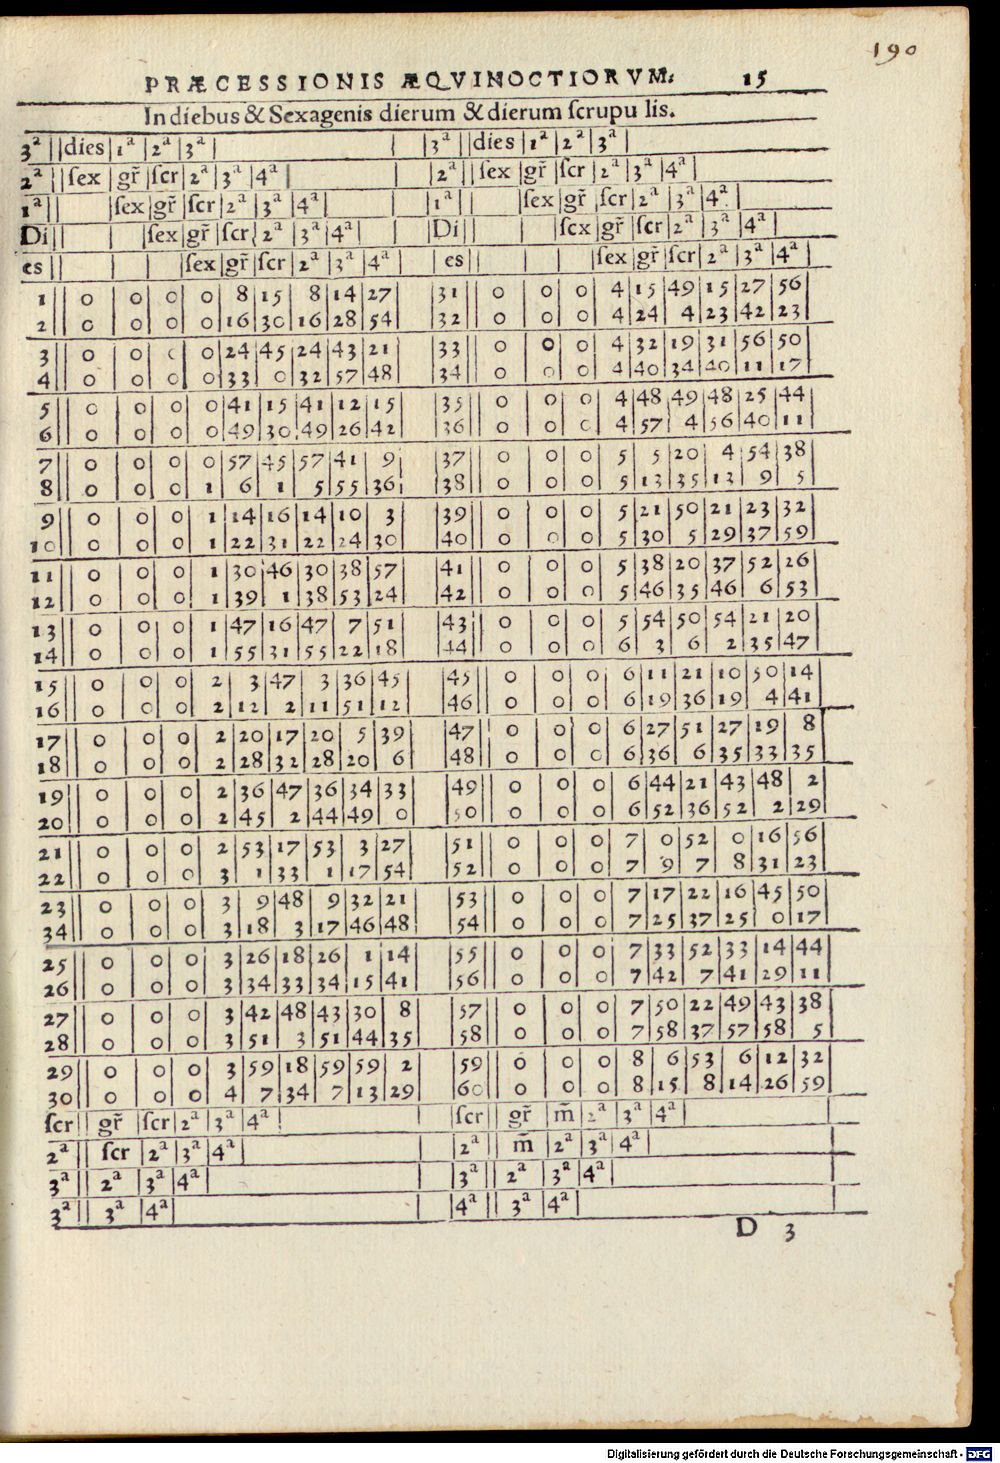 190
PRÆCESSIONIS ÆQVINOCTIORVM. 15
In diebus & Sexagenis dierum & dierum ſcrupu lis.
3ª dies 1ª 2ª 3ª 3ª dies 1ª 2ª 3ª
2ª ſex gr̃ ſcr 2ª 3ª 4ª 2ª ſex gr̃ ſcr 2ª 3ª 4ª
1ª ſex gr̃ ſcr 2ª 3ª 4ª 1ª ſex gr̃ ſcr 2ª 3ª 4ª
Di ſex gr̃ ſcr 2ª 3ª 4ª Di ſex gr̃ ſcr 2ª 3ª 4ª
es ſex gr̃ ſcr 2ª 3ª 4ª es ſex gr̃ ſcr 2ª 3ª 4ª
1 0 0 0 0 8 15 8 14 27 31 0 0 0 4 15 49 15 27 56
2 0 0 0 0 16 30 16 28 54 32 0 0 0 4 24 4 23 42 23
3 0 0 0 0 24 45 24 43 21 33 0 0 0 4 32 19 31 56 50
4 0 0 0 0 33 0 32 57 48 34 0 0 0 4 40 34 40 11 17
5 0 0 0 0 41 15 41 12 15 35 0 0 0 4 48 49 48 25 44
6 0 0 0 0 49 30 49 26 42 36 0 0 0 4 57 4 56 40 11
7 0 0 0 0 57 45 57 41 9 37 0 0 0 5 5 20 4 54 38
8 0 0 0 1 6 1 5 55 36 38 0 0 0 5 13 35 13 9 5
9 0 0 0 1 14 16 14 10 3 39 0 0 0 5 21 50 21 23 32
10 0 0 0 1 22 31 22 24 30 40 0 0 0 5 30 5 29 37 59
11 0 0 0 1 30 46 30 38 57 41 0 0 0 5 38 20 37 52 26
12 0 0 0 1 39 1 38 53 24 42 0 0 0 5 46 35 46 6 53
13 0 0 0 1 47 16 47 7 51 43 0 0 0 5 54 50 54 21 20
14 0 0 0 1 55 31 55 22 18 44 0 0 0 6 3 6 2 35 47
15 0 0 0 2 3 47 3 36 45 45 0 0 0 6 11 21 10 50 14
16 0 0 0 2 12 2 11 51 12 46 0 0 0 6 19 36 19 4 41
17 0 0 0 2 20 17 20 5 39 47 0 0 0 6 27 51 27 19 8
18 0 0 0 2 28 32 28 20 6 48 0 0 0 6 36 6 35 33 35
19 0 0 0 2 36 47 36 34 33 49 0 0 0 6 44 21 43 48 2
20 0 0 0 2 45 2 44 49 0 50 0 0 0 6 52 36 52 2 29
21 0 0 0 2 53 17 53 3 27 51 0 0 0 7 0 52 0 16 56
22 0 0 0 3 1 33 1 17 54 52 0 0 0 7 9 7 8 31 23
23 0 0 0 3 9 48 9 32 21 53 0 0 0 7 17 22 16 45 50
34 0 0 0 3 18 3 17 46 48 54 0 0 0 7 25 37 25 0 17
25 0 0 0 3 26 18 26 1 14 55 0 0 0 7 33 52 33 14 44
26 0 0 0 3 34 33 34 15 41 56 0 0 0 7 42 7 41 29 11
27 0 0 0 3 42 48 43 30 8 57 0 0 0 7 50 22 49 43 38
28 0 0 0 3 51 3 51 44 35 58 0 0 0 7 58 37 57 58 5
29 0 0 0 3 59 18 59 59 2 59 0 0 0 8 6 53 6 12 32
30 0 0 0 4 7 34 7 13 29 60 0 0 0 8 15 8 14 26 59
ſcr gr̃ ſcr 2ª 3ª 4ª ſcr gr̃ m̃ 2ª 3ª 4ª
2ª ſcr 2ª 3ª 4ª 2ª m̃ 2ª 3ª 4ª
3ª 2ª 3ª 4ª 3ª 2ª 3ª 4ª
3ª 3ª 4ª 4ª 3ª 4ª
D 3
Digitalisierung gefördert durch die Deutsche Forschungsgemeinschaft - DFG